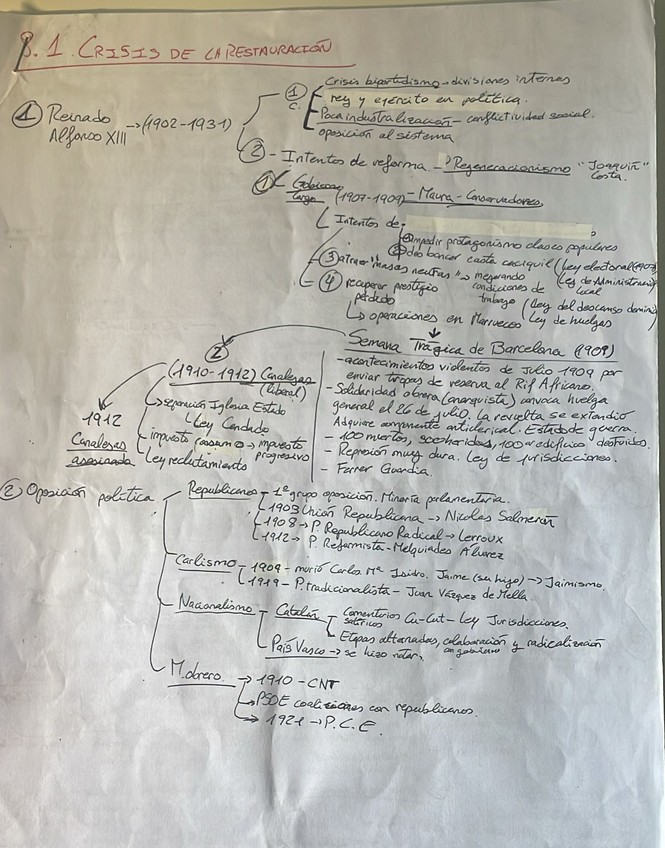 8.1. CRISIS DE LA RESTAURACIÓN
① Reinado Alfonso XIII → (1902-1931)
① C. Crisis bipartidismo → divisiones internas
rey y ejército en política.
Poca industralización - conflictividad social.
oposición al sistema
② - Intentos de reforma - Regeneracionismo "Joaquín" Costa.
① Gobierno largo (1907-1909) - Maura - Conservadores
Intentos de
impedir protagonismo clases populares
② desbancar casta caciquil (Ley electoral (1907)
(Ley de Administración local
③ atraer "masas neutras" → mejorando condiciones de trabajo (Ley del descanso domini
Ley de huelgas
④ recuperar prestigio perdido
↳ operaciones en Marruecos
Semana Trágica de Barcelona (1909)
- acontecimientos violentos de Julio 1909 por
enviar tropas de reserva al Rif Africano.
- Solidaridad obrera (anarquista) convoca huelga
general el 26 de julio. La revuelta se extendió
Adquiere componente anticlerical. Estado de guerra.
- 100 muertos, 500 heridos, 100 edificios destruidos.
- Represión muy dura. Ley de jurisdicciones.
- Ferrer Guardia.
②
(1910-1912) Canalejas (liberal)
↳ separación Iglesia Estado
Ley Candado
impuesto consumo → impuesto progresivo
Ley reclutamiento
1912
Canalejas asesinado
② Oposición política
Republicanos - 1º grupo oposición. Minoría parlamentaria.
1903 Unión Republicana → Nicolas Salmerón
1908 → P. Republicano Radical → Lerroux
1912 → P. Reformista - Melquiades Álvarez
Carlismo - 1909 - murió Carlos Mª Isidro. Jaime (su hijo) → Jaimismo.
1919 - P. tradicionalista - Juan Vázquez de Mella
Nacionalismo - Catalán - Comentarios satíricos Cu-Cut - Ley Jurisdicciones.
Etapas alternadas, colaboración con gobierno y radicalización
País Vasco → se hizo notar,
M. obrero → 1910 - CNT
→ PSOE coaliciones con republicanos.
→ 1921 → P.C.E.